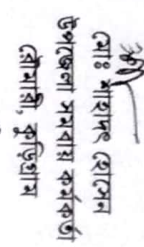 মোঃ শাহাদৎ হোসেন
উপজেলা সমবায় কর্মকর্তা
রৌমারী, কুড়িগ্রাম